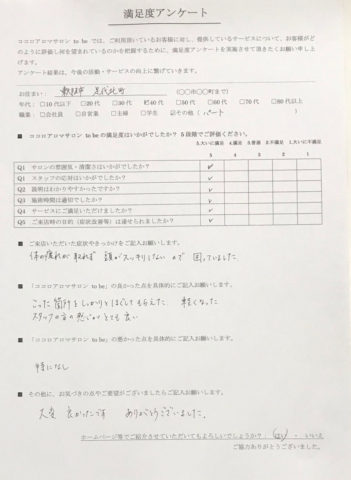 満足度アンケート
ココロアロマサロン to be では、ご利用頂いているお客様に対し、提供しているサービスについて、お客様がど
のように評価し何を望まれているのかを把握するために、満足度アンケートを実施させて頂きたくお願い申し上
げます。
アンケート結果は、今後の活動・サービスの向上に繋げていきます。
お住まい: (○○市○○町まで)
年代: □10代以下 □20代 □30代 ☑40代 □50代 □60代 □70代 □80代以上
職業: □会社員 □自営業 □主婦 □学生 ☑その他( パート )
ココロアロマサロン to be の満足度はいかがでしたか? 5段階でご評価ください。
5.大いに満足 4.満足 3.普通 2.不満足 1.大いに不満足
5 4 3 2 1
Q1 サロンの雰囲気・清潔さはいかがでしたか? ✓
Q1 スタッフの応対はいかがでしたか? ✓
Q2 説明はわかりやすかったですか? ✓
Q3 施術時間は適切でしたか? ✓
Q4 サービスにご満足いただけましたか? ✓
Q5 ご来店時の目的(症状改善等)は達せられましたか? ✓
■ ご来店いただいた症状やきっかけをご記入お願いします。
体の疲れが取れず 頭がスッキリしないので 困っていました
■ 「ココロアロマサロン to be」の良かった点を具体的にご記入お願いします。
こった箇所をしっかりとほぐしてもらえた 軽くなった
スタッフの方の感じがとても良い
■ 「ココロアロマサロン to be」の悪かった点を具体的にご記入お願いします。
特になし
■ その他に、お気づきの点やご要望がございましたらご記入お願いします。
大変 良かったです ありがとうございました。
ホームページ等でご紹介させていただいてもよろしいでしょうか? はい ・ いいえ
ご協力ありがとうございました。